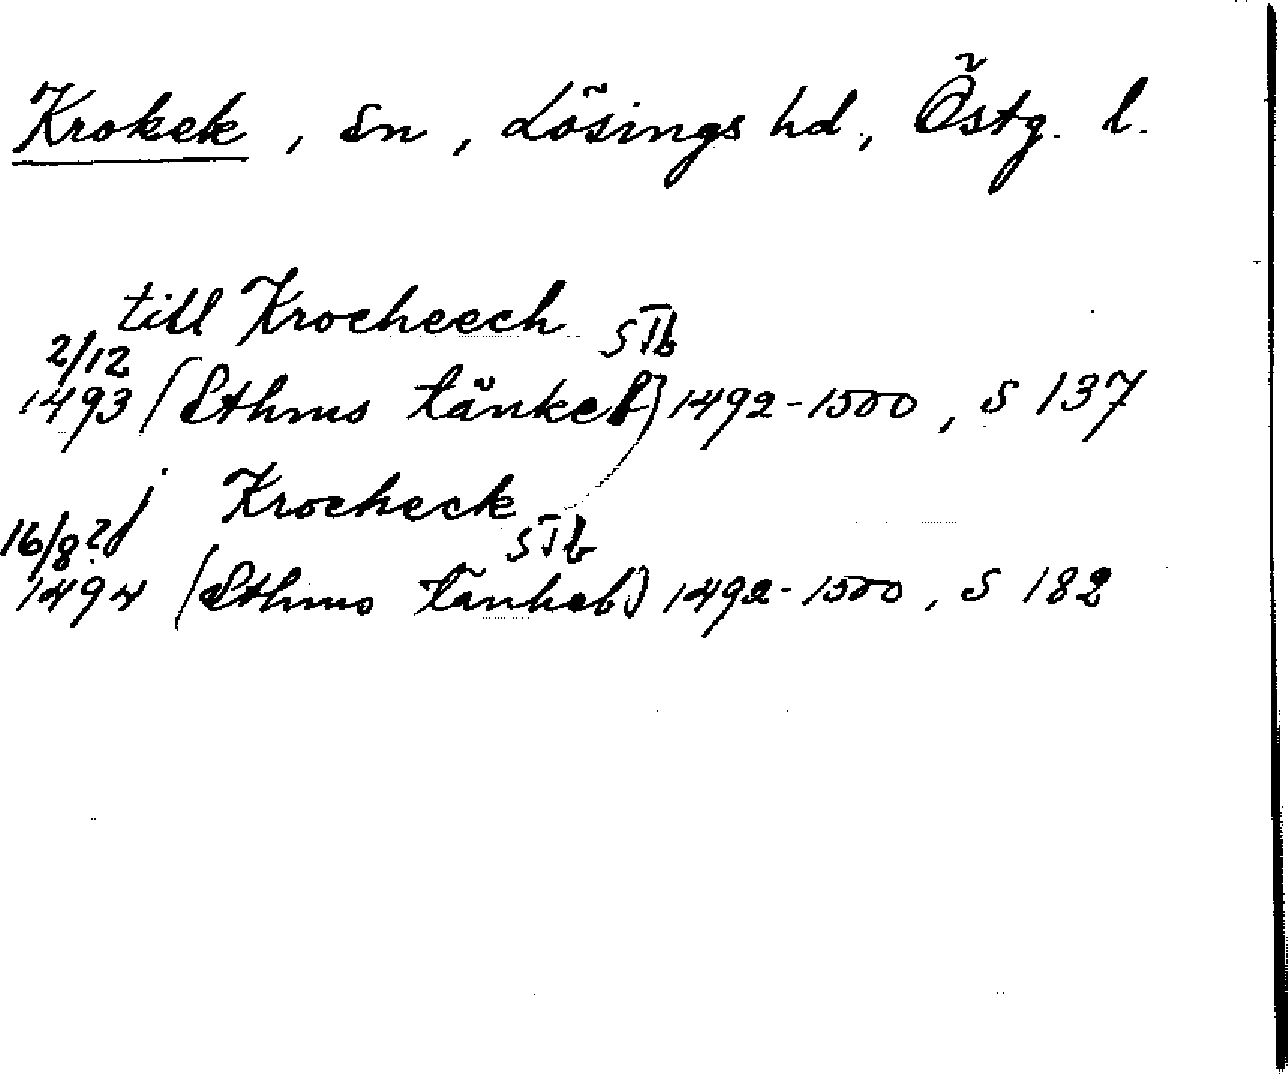 Krokek, sn, Lösings hd., Östg. l.
till Krocheech STb
2/12
1493 (Sthms tänkeb) 1492-1500, s 137
j Krocheck
16/8 ? STb
1494 (Sthms tänkeb) 1492-1500, s 182